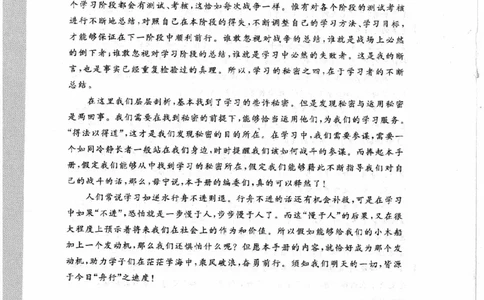 个学习阶段都会有测试、考核,这恰如每次战争一样。惟有对各个阶段的测试考核
进行不断地总结,对照自己在本阶段的得失,不断调整自己的学习方法、学习目标,
才能够保证在下一阶段中顺利前行。谁敢忽视对战争的总结,谁就是战场上必然
的倒下者;谁敢忽视对学习阶段的总结,谁就是学习中必然的失败者。这是我的断
言,也是事实已经重复检验过的真理。所以,学习的秘密之四,在于学习者的不断
总结。
在这里我们层层剖析,基本找到了学习的些许秘密。但是发现秘密与运用秘密
是两回事。我们需要在找到秘密的前提下,能够恰当运用他们,为我们的学习服务。
“得法以得道”,这才是我们发现秘密的目的所在。在学习中,我们需要参谋,需要一
个如同冷静长者一般站在我们身边,时时提醒我们该如何战斗的参谋。而捧起本手
册,假定我们能够从中找到学习的秘密所在,假定我们能够藉此不断指导我们对自
己的战斗的话,那么,毋宁说,本手册的编委们,真的可以释然了!
人们常说学习如逆水行舟不进则退。行舟不进的话还有机会补救,可是在学习
中如果“不进”,恐怕就是一步慢于人,步步慢于人了。而这“慢于人”的后果,又在很
大程度上预示着将来我们在社会上的作为和价值。所以假如能够给我们的小木船
加上一个发动机,那么我们还惧怕什么呢?但愿本手册的内容,就恰好成为那个发
动机,助力学子们在茫茫学海中,乘风破浪,奋勇前行。须知我们明天的一切,皆源
于今日“舟行”之速度!